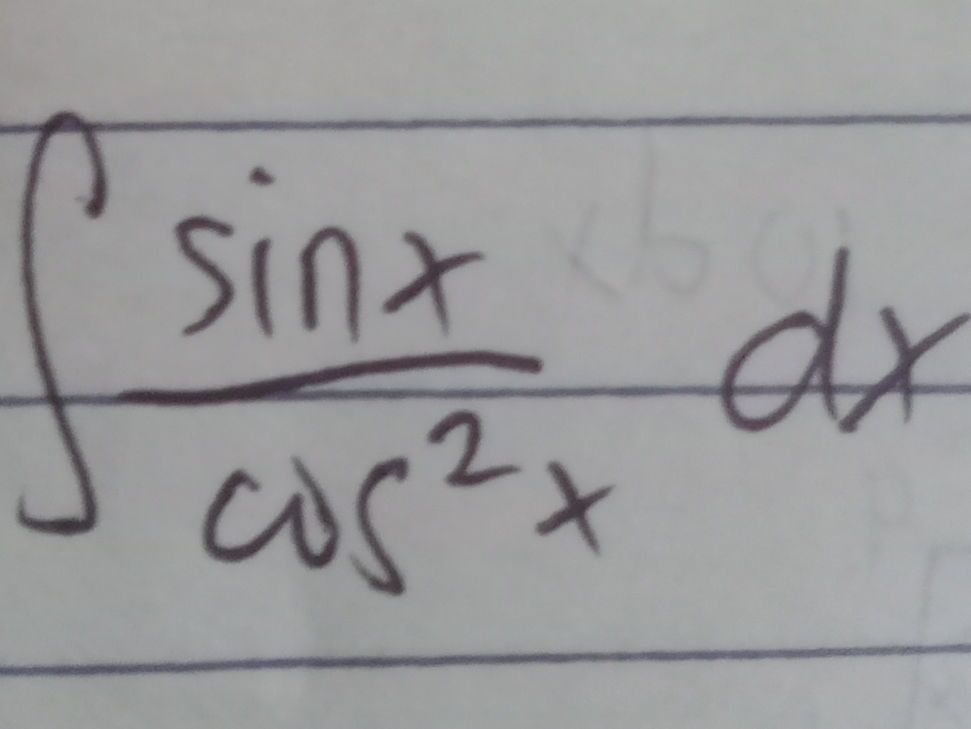 ∫ sinx / cos²x dx